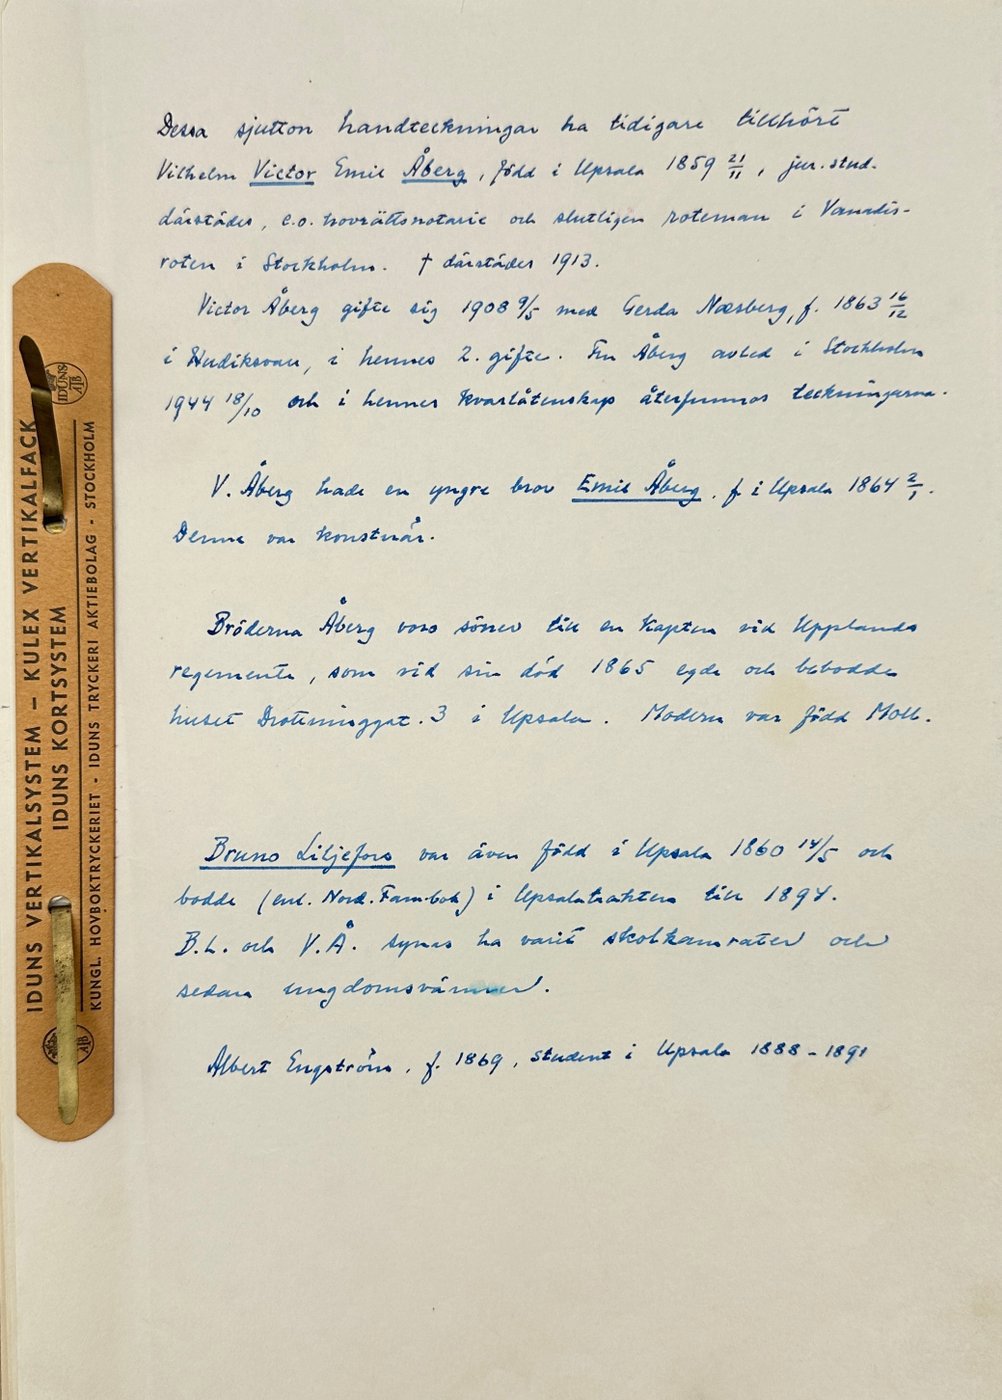 Dessa sjutton handteckningar ha tidigare tillhört
Vilhelm Victor Emil Åberg, född i Upsala 1859 21/11, jur. stud.
därstädes, e.o. hovrättsnotarie och slutligen roteman i Vanadis-
roten i Stockholm. † därstädes 1913.
Victor Åberg gifte sig 1908 9/5 med Gerda Næsberg, f. 1863 16/12
i Hudiksvall, i hennes 2. gifte. Fru Åberg avled i Stockholm
1944 18/10 och i hennes kvarlåtenskap återfunnos teckningarna.
V. Åberg hade en yngre bror Emil Åberg, f. i Upsala 1864 2/1.
Denne var konstnär.
Bröderna Åberg voro söner till en kapten vid Upplands
regemente, som vid sin död 1865 egde och bebodde
huset Drottninggat. 3 i Upsala. Modern var född Moll.
Bruno Liljefors var även född i Upsala 1860 14/5 och
bodde (enl. Nord. Fam.bok) i Upsalatrakten till 1894.
B.L. och V.Å. synas ha varit skolkamrater och
sedan ungdomsvänner.
Albert Engström, f. 1869, student i Upsala 1888-1891
IDUNS VERTIKALSYSTEM – KULEX VERTIKALFACK
IDUNS KORTSYSTEM
KUNGL. HOVBOKTRYCKERIET • IDUNS TRYCKERI AKTIEBOLAG • STOCKHOLM
IDUNS
AB
AB